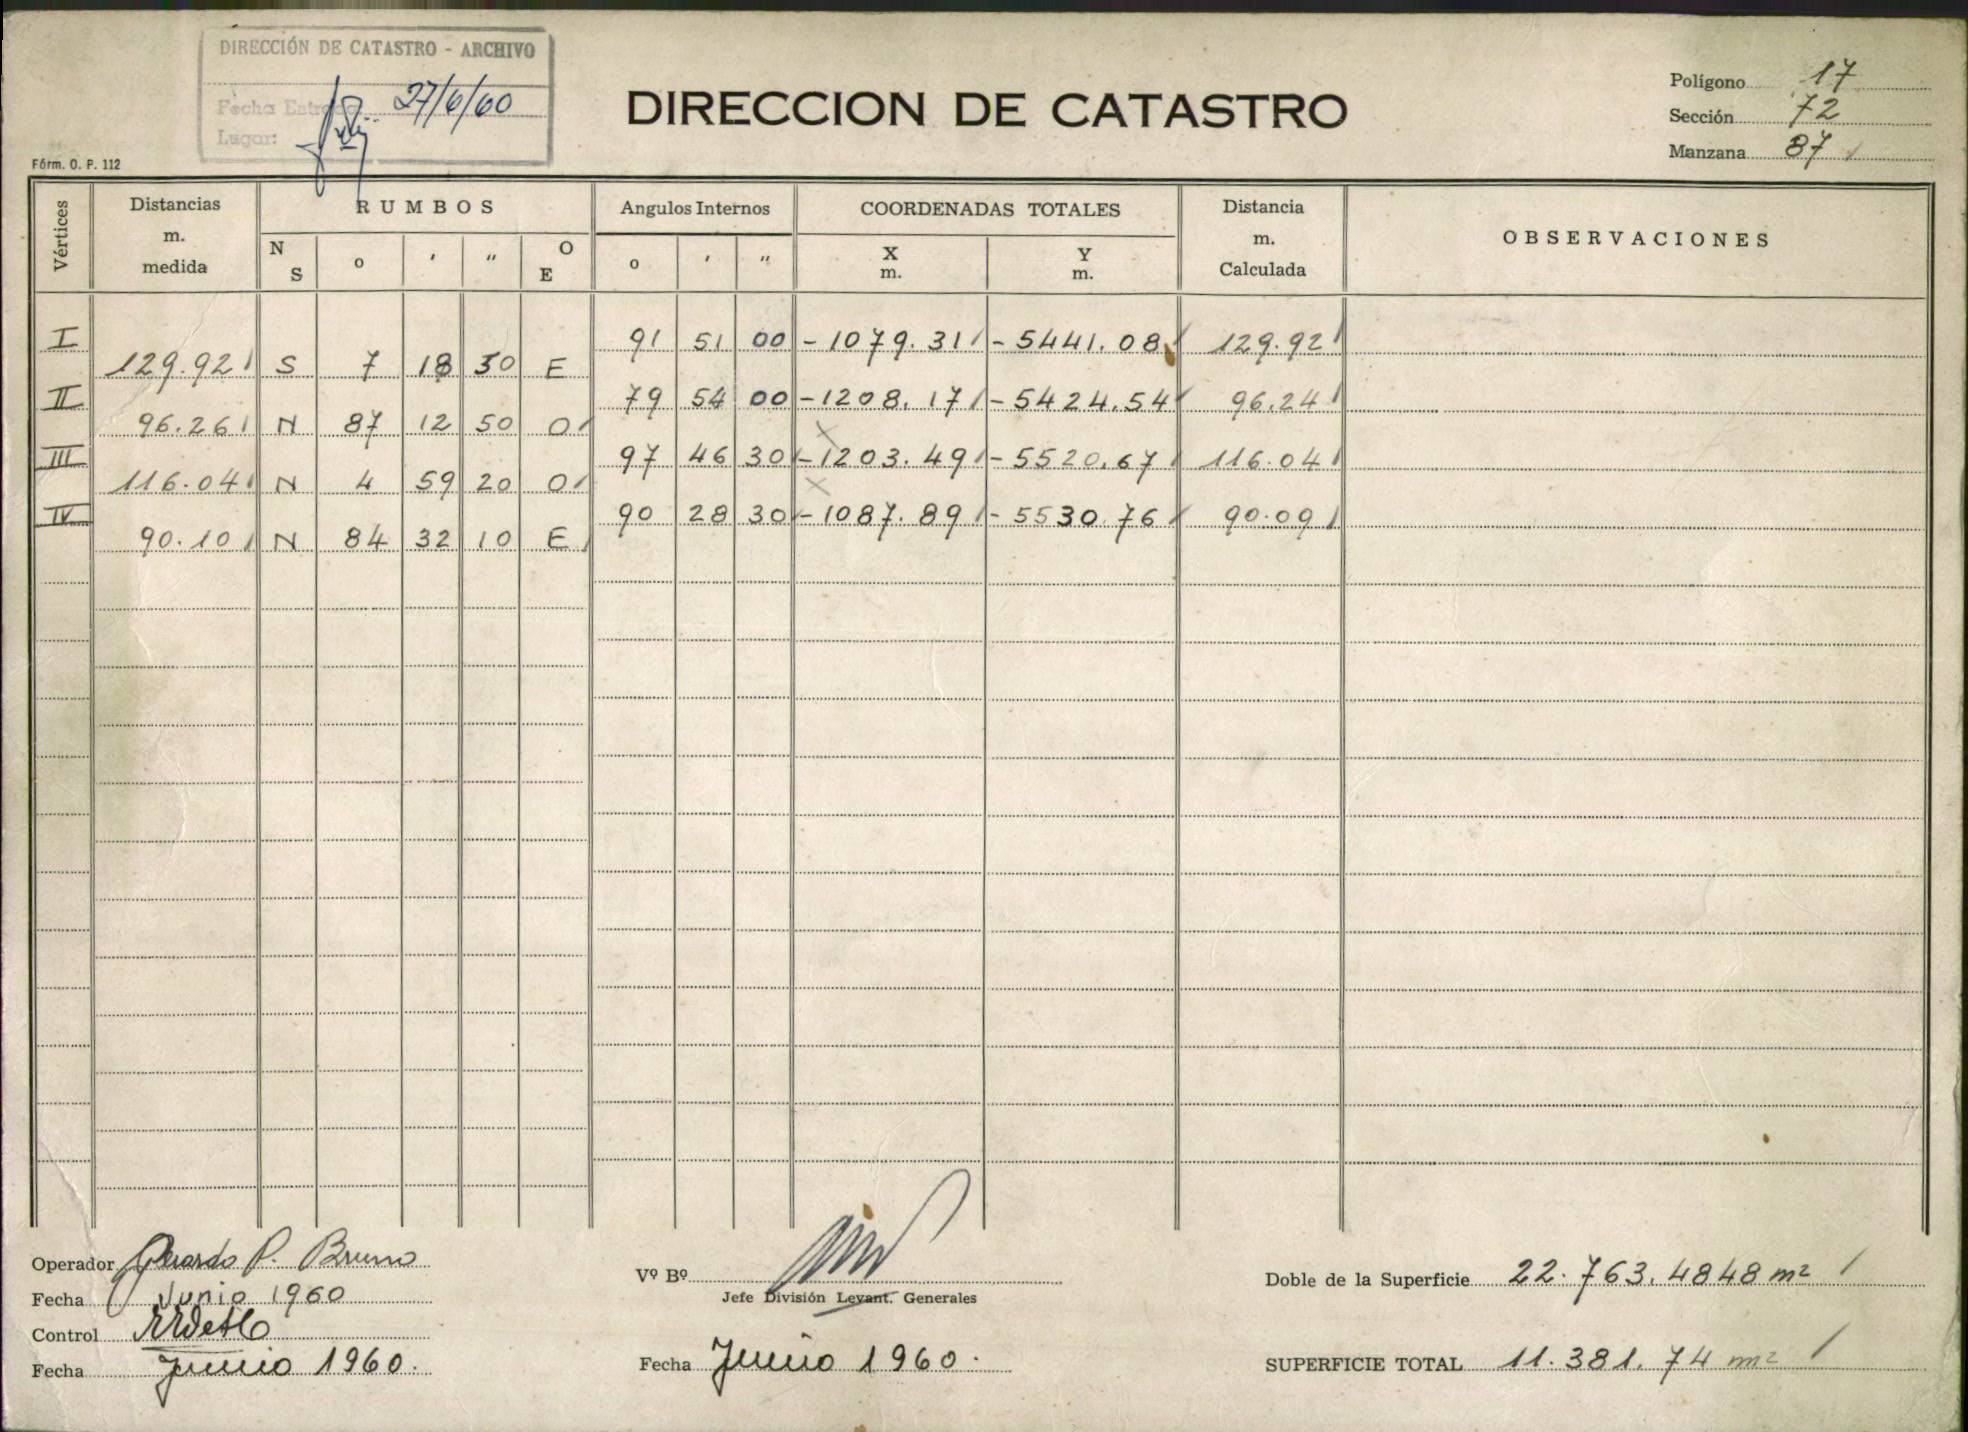 DIRECCIÓN DE CATASTRO - ARCHIVO
Fecha Entrada 27/6/60
Lugar:
DIRECCION DE CATASTRO
Polígono 17
Sección 72
Manzana 87
Fórm. O. P. 112
Vértices
Distancias
m.
medida
RUMBOS
N
S
o
'
"
O
E
Angulos Internos
o
'
"
COORDENADAS TOTALES
X
m.
Y
m.
Distancia
m.
Calculada
OBSERVACIONES
I 91 51 00 -1079.31 -5441.08 129.92
129.92 S 7 18 50 E
II 79 54 00 -1208.17 -5424.54 96.24
96.26 N 87 12 50 O
III 97 46 30 -1203.49 -5520.67 116.04
116.04 N 4 59 20 O
IV 90 28 30 -1087.89 -5530.76 90.09
90.10 N 84 32 10 E
Operador Gerardo P. Bruno
Fecha Junio 1960
Control
Fecha Junio 1960.
Vº Bº
Jefe División Levant. Generales
Fecha Junio 1960.
Doble de la Superficie 22.763.4848 m2
SUPERFICIE TOTAL 11.381.74 m2